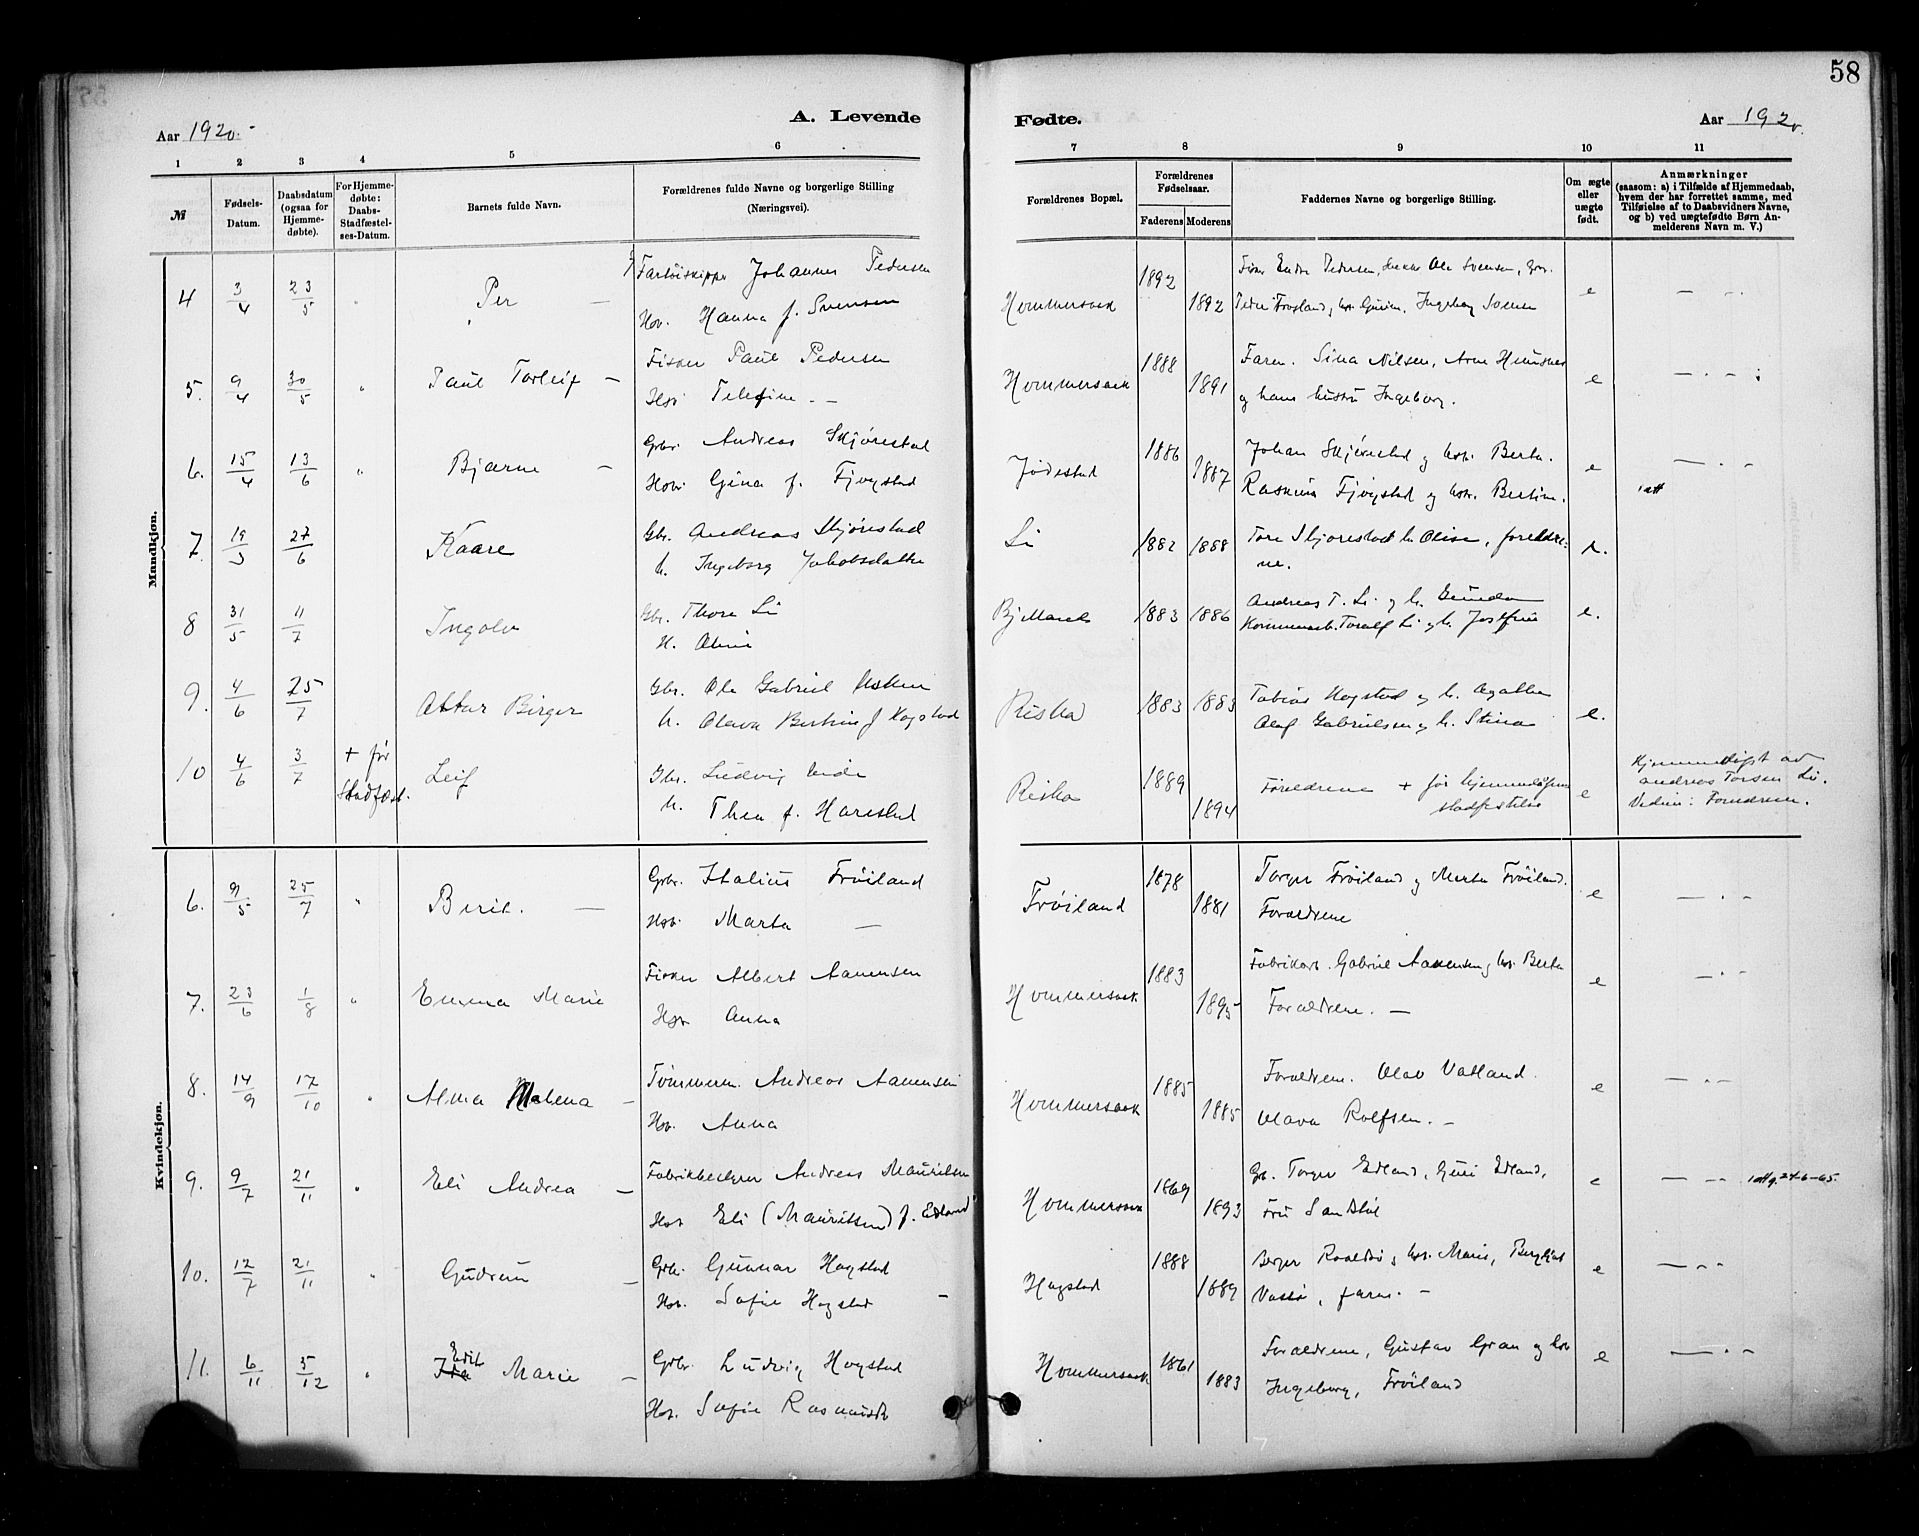 58
Aar 1920.
A. Levende
Fødte.
Aar 1920.
1 2 3 4 5 6 7 8 9 10 11
№
Fødsels-Datum.
Daabsdatum (ogsaa for Hjemme-døbte).
For Hjemme-døbte: Daabs-Stadfæstel-ses-Datum.
Barnets fulde Navn.
Forældrenes fulde Navne og borgerlige Stilling (Næringsvei).
Forældrenes Bopæl.
Forældrenes Fødselsaar.
Faderens
Moderens
Faddernes Navne og borgerlige Stilling.
Om ægte eller uægte født.
Anmærkninger
(saasom: a) i Tilfælde af Hjemmedaab,
hvem der har forrettet samme, med
Tilføielse af to Daabsvidners Navne,
og b) ved uægtefødte Børn An-
melderens Navn m. V.)
Mandkjøn.
4 3/4 23/5 " Per — Fartøiskipper Johannes Pedersen
Hov. Hanna f. Svensen
Hommersaak 1892 1892 Endre Pedersen, Ole Svensen,
Peder Frøyland, Ingeborg Svensen e — " -
5. 9/4 30/5 " Paul Torleif — Fisker Paul Pedersen
Hov. Telefine. —
Hommersaak 1888 1891 Faren. Sina Nilsen, Arne
og hans hustru Ingeborg. e
6. 15/4 13/6 " Bjarne — Grbr. Andreas Skjørestad
Hov. Gina f. Fjogstad
Jødestad 1886 1887 Johan Skjørestad og hst. Berta.
Rasmus Fjogstad og hst. Bertine. e — " - att
7. 19/3 27/6 Kaare Gbr. Andreas Skjørestad
h. Ingeborg Jakobsdatter
Li 1882 1888 Tore Skjørestad h. Olise, foreldre-
ne. e.
8 31/5 11/7 Ingolv Gbr. Thore Li
H. Oline
1883 1886 Andreas T. Li og h.
Toralf Li og h. Jostfrid e.
9. 4/6 25/7 Birger Gbr. Ole Gabriel
h. Olava Bertine f Hogstad
Riska 1883 1883 Tobias Hogstad og h. Agathe
Olaf Gabrielsen og h. Stina e.
10 4/6 3/7 + før Stadfæst. Leif Gbr. Ludvig
h. Thea f. Harestad
Riska 1889 1894 Foreldrene + før hjemmedåpens
stadfestelse e Hjemmedøpt av
Andreas Torsen Li.
Vidner: Foreldrene.
Kvindekjøn.
6. 9/5 25/7 " Berit. — Grbr. Italius Frøiland
Hov. Marta —
Frøiland 1878 1881 Torger Frøiland og Marta Frøiland.
Forældrene e — " -
7. 23/6 1/8 " Emma Marie Fisker Albert Aanensen
Hov Anna
Hommersaak 1883 1895 Fabrikarb. Gabriel Aanensen og hst. Berta
Forældrene. — e — " -
8. 14/9 17/10 " Alma Malena — Tømmerm. Andreas Aanensen
Hov. Anna
Hommersaak 1885 1885 Forældrene. Olav Vatland.
Olava Rolfsen. — e — " -
9. 9/7 21/11 " Eli Andrea — Fabrikbestyrer Andreas Mauritsen
Hov. Eli (Mauritsen) f. Edland
Hommersaak 1869 1893 Gb. Torger Edland, Guri Edland,
Fru Sandstøl e — " - attg. 24-6-65.
10. 12/7 21/11 " Gudrun — Grbr. Gunnar Hogstad
Hov. Sofie Hogstad —
Hogstad 1888 1889 Berger hst. Marie,
Vastø, faren. — e — " -
11. 6/11 5/12 " Edit Marie — Grbr. Ludvig Hogstad
Hov. Sofie Rasmusdtr
Hommersaak 1861 1883 Forældrene, Gustav Gran og hst
Ingeborg, Frøiland e — " -